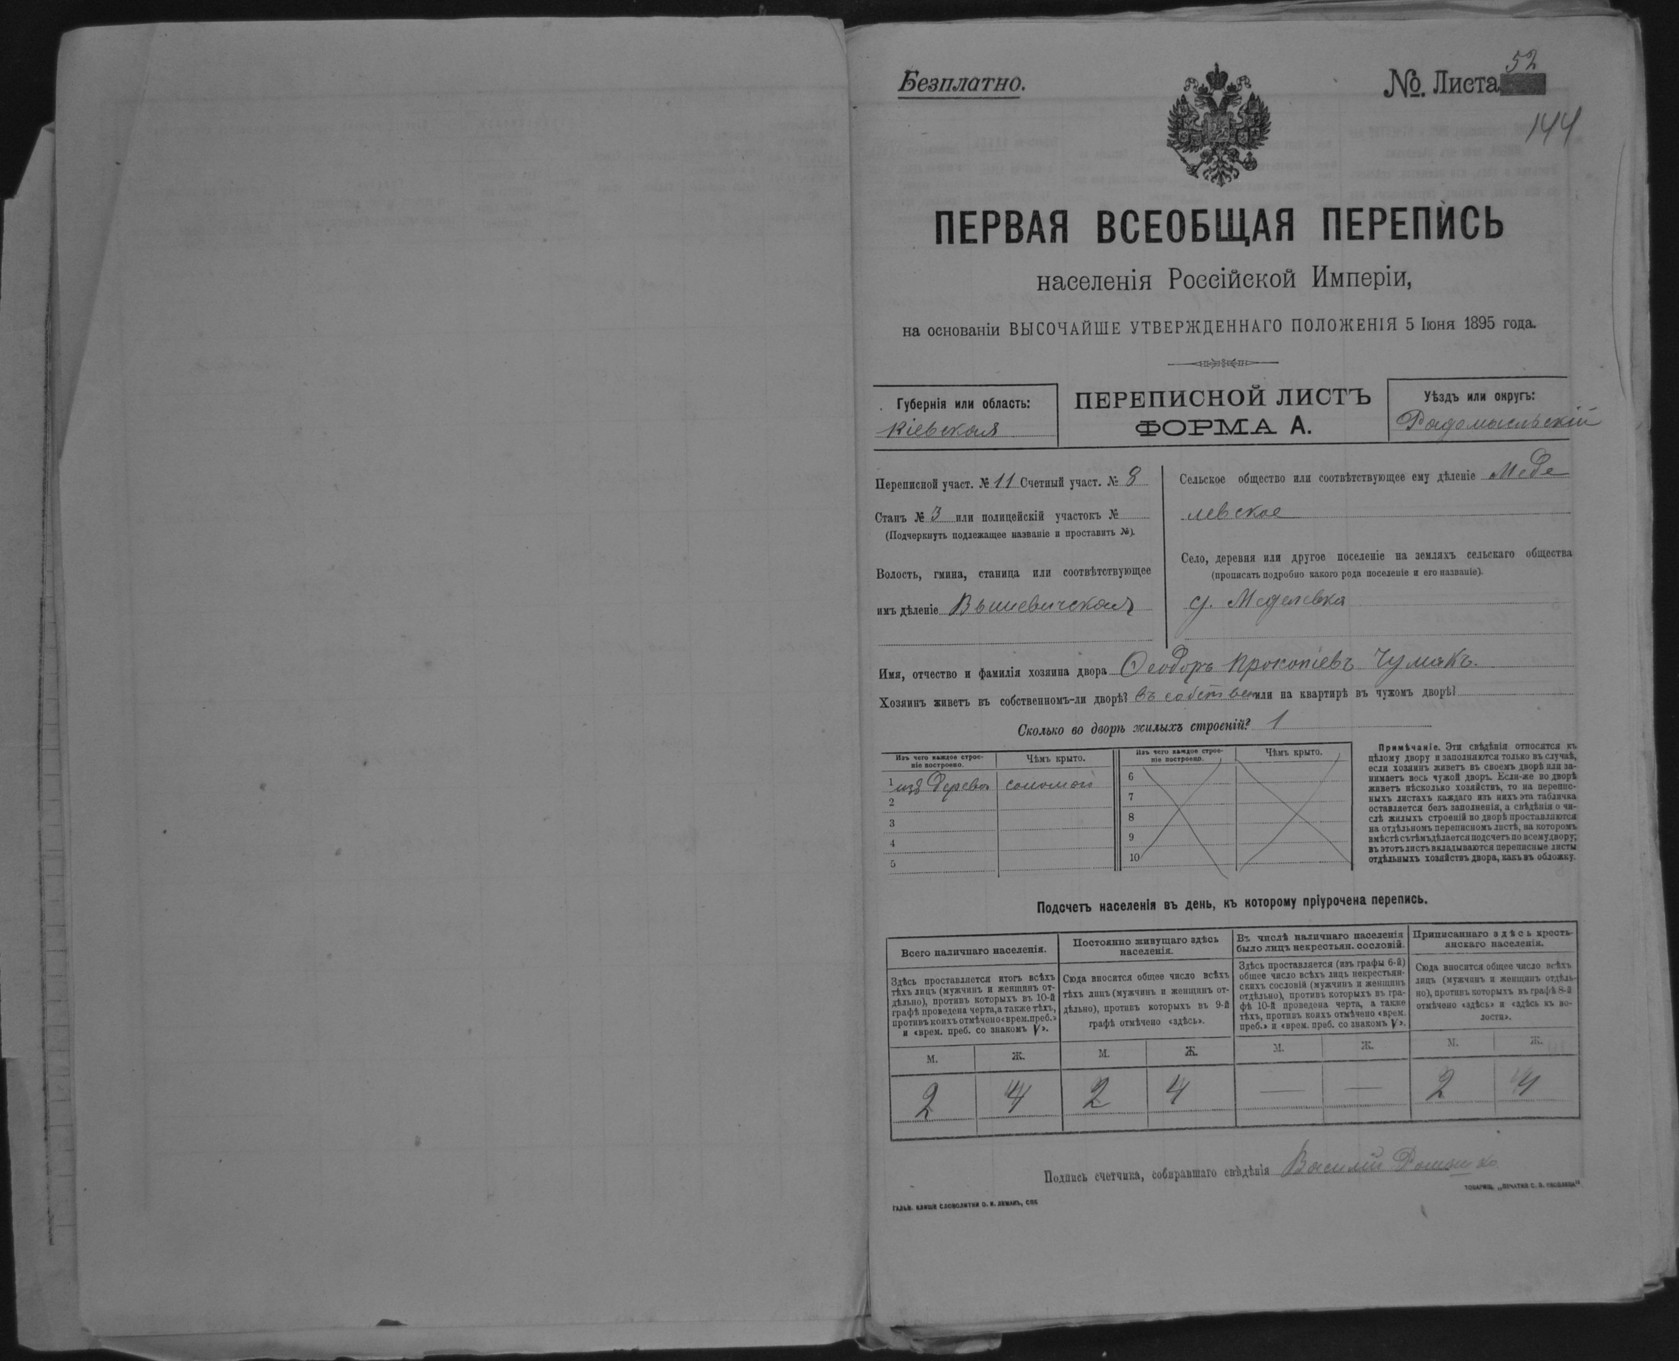 Безплатно.
№. Листа 52
144
ПЕРВАЯ ВСЕОБЩАЯ ПЕРЕПИСЬ
населенія Россійской Имперіи,
на основаніи ВЫСОЧАЙШЕ УТВЕРЖДЕННАГО ПОЛОЖЕНІЯ 5 Іюня 1895 года.
Губернія или область:
Кіевская
ПЕРЕПИСНОЙ ЛИСТЪ
ФОРМА А.
Уѣздъ или округъ:
Радомысльскій
Переписной участ. № 11 Счетный участ. № 8
Станъ № 3 или полицейскій участокъ №
(Подчеркнуть подлежащее названіе и проставить №).
Волость, гмина, станица или соотвѣтствующее
имъ дѣленіе Вышевичская
Сельское общество или соотвѣтствующее ему дѣленіе Меде
левское
Село, деревня или другое поселеніе на земляхъ сельскаго общества
(прописать подробно какого рода поселеніе и его названіе).
д. Меделевка
Имя, отчество и фамилія хозяина двора Ѳеодоръ Прокопіевъ Чумакъ.
Хозяинъ живетъ въ собственномъ-ли дворѣ? въ собствен или на квартирѣ въ чужомъ дворѣ?
Сколько во дворѣ жилыхъ строеній? 1
Изъ чего каждое строе-
ніе построено.
Чѣмъ крыто.
1 изъ дерева соломой
2
3
4
5
Изъ чего каждое строе-
ніе построено.
Чѣмъ крыто.
6
7
8
9
10
Примѣчаніе. Эти свѣдѣнія относятся къ
цѣлому двору и заполняются только въ случаѣ,
если хозяинъ живетъ въ своемъ дворѣ или за-
нимаетъ весь чужой дворъ. Если-же во дворѣ
живетъ нѣсколько хозяйствъ, то на перепис-
ныхъ листахъ каждаго изъ нихъ эта табличка
оставляется безъ заполненія, а свѣдѣнія о чи-
слѣ жилыхъ строеній во дворѣ проставляются
на отдѣльномъ переписномъ листѣ, на которомъ
вмѣстѣ съ тѣмъ дѣлается подсчетъ по всему двору;
въ этотъ листъ вкладываются переписные листы
отдѣльныхъ хозяйствъ двора, какъ въ обложку.
Подсчетъ населенія въ день, къ которому пріурочена перепись.
Всего наличнаго населенія.
Здѣсь проставляется итогъ всѣхъ
тѣхъ лицъ (мужчинъ и женщинъ от-
дѣльно), противъ которыхъ въ 10-й
графѣ проведена черта, а также тѣхъ,
противъ коихъ отмѣчено «врем. преб.»
и «врем. преб. со знакомъ V».
Постоянно живущаго здѣсь
населенія.
Сюда вносится общее число всѣхъ
тѣхъ лицъ (мужчинъ и женщинъ от-
дѣльно), противъ которыхъ въ 9-й
графѣ отмѣчено «здѣсь».
Въ числѣ наличнаго населенія
было лицъ некрестьян. сословій.
Здѣсь проставляется (изъ графы 6-й)
общее число всѣхъ лицъ некрестьян-
скихъ сословій (мужчинъ и женщинъ
отдѣльно), противъ которыхъ въ гра-
фѣ 10-й проведена черта, а также
тѣхъ, противъ коихъ отмѣчено «врем.
преб.» и «врем. преб. со знакомъ V».
Приписаннаго здѣсь кресть-
янскаго населенія.
Сюда вносится общее число всѣхъ
лицъ (мужчинъ и женщинъ отдѣль-
но), противъ которыхъ въ графѣ 8-й
отмѣчено «здѣсь» и «здѣсь къ во-
лости».
М. Ж. М. Ж. М. Ж. М. Ж.
2 4 2 4 — — 2 4
Подпись счетчика, собиравшаго свѣдѣнія Василій
ГАЛЬВ. КЛИШЕ СЛОВОЛИТНИ О. И. ЛЕМАНЪ, СПБ
ТОВАРИЩ. „ПЕЧАТНЯ С. П. ЯКОВЛЕВА"